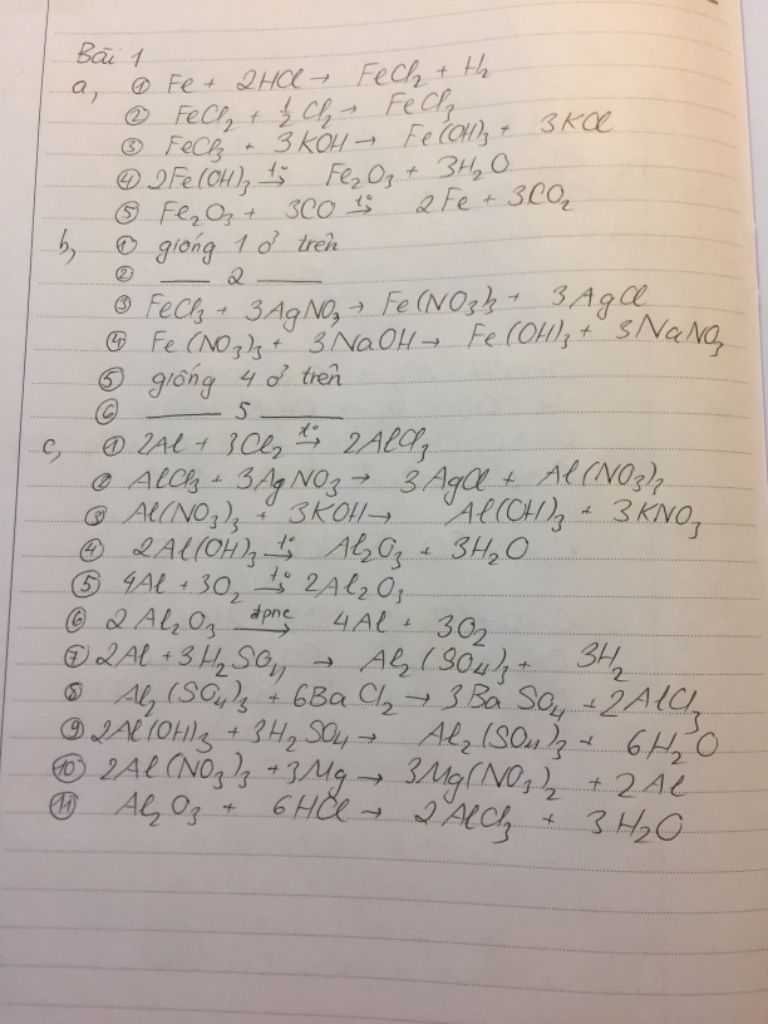 Bài 1
a, ① Fe + 2HCl → FeCl₂ + H₂
② FeCl₂ + ½ Cl₂ → FeCl₃
③ FeCl₃ + 3KOH → Fe(OH)₃ + 3KCl
④ 2Fe(OH)₃ t°→ Fe₂O₃ + 3H₂O
⑤ Fe₂O₃ + 3CO t°→ 2Fe + 3CO₂
b, ① giống 1 ở trên
② —— 2 ——
③ FeCl₃ + 3AgNO₃ → Fe(NO₃)₃ + 3AgCl
④ Fe(NO₃)₃ + 3NaOH → Fe(OH)₃ + 3NaNO₃
⑤ giống 4 ở trên
⑥ —— 5 ——
c, ① 2Al + 3Cl₂ t°→ 2AlCl₃
② AlCl₃ + 3AgNO₃ → 3AgCl + Al(NO₃)₃
③ Al(NO₃)₃ + 3KOH → Al(OH)₃ + 3KNO₃
④ 2Al(OH)₃ t°→ Al₂O₃ + 3H₂O
⑤ 4Al + 3O₂ t°→ 2Al₂O₃
⑥ 2Al₂O₃ dpnc→ 4Al + 3O₂
⑦ 2Al + 3H₂SO₄ → Al₂(SO₄)₃ + 3H₂
⑧ Al₂(SO₄)₃ + 6BaCl₂ → 3BaSO₄ + 2AlCl₃
⑨ 2Al(OH)₃ + 3H₂SO₄ → Al₂(SO₄)₃ + 6H₂O
⑩ 2Al(NO₃)₃ + 3Mg → 3Mg(NO₃)₂ + 2Al
⑪ Al₂O₃ + 6HCl → 2AlCl₃ + 3H₂O